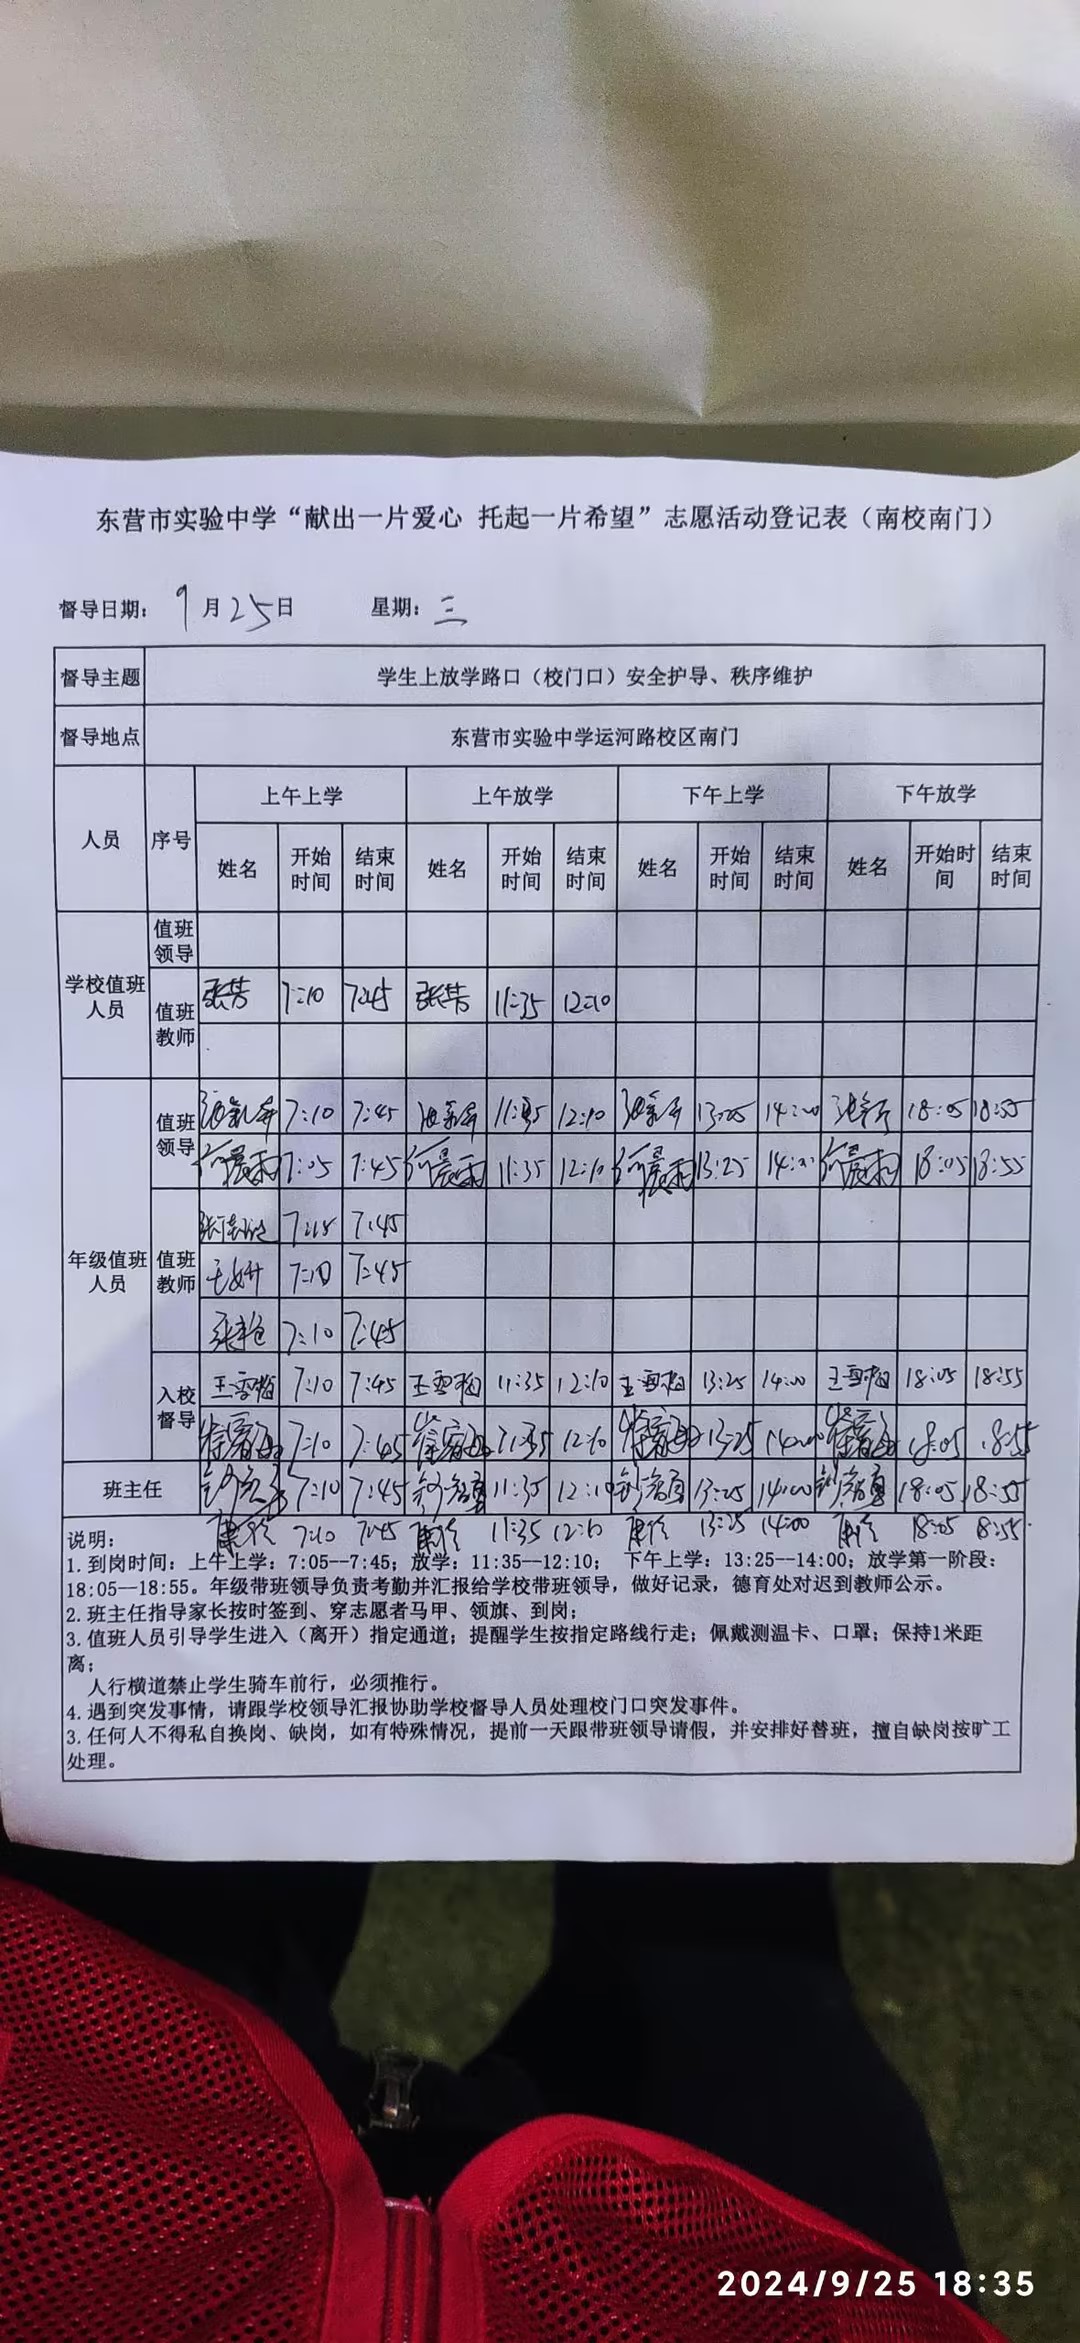 东营市实验中学“献出一片爱心 托起一片希望”志愿活动登记表（南校南门）
督导日期：9月25日 星期：三
督导主题 学生上放学路口（校门口）安全护导、秩序维护
督导地点 东营市实验中学运河路校区南门
人员 序号 上午上学 上午放学 下午上学 下午放学
姓名 开始时间 结束时间 姓名 开始时间 结束时间 姓名 开始时间 结束时间 姓名 开始时间 结束时间
学校值班人员 值班领导
值班教师 张芳 7:10 7:45 张芳 11:35 12:10
年级值班人员 值班领导 7:10 7:45 11:35 12:10 14:00 18:05 18:55
何晨雨 7:05 7:45 何晨雨 11:35 12:10 何晨雨 13:25 何晨雨 18:05 18:55
值班教师 7:45
7:10 7:45
7:10 7:45
入校督导 王雪梅 7:10 7:45 王雪梅 11:35 12:10 王雪梅 13:25 14:00 王雪梅 18:05 18:55
7:10 7:45 11:35 12:10 13:25 14:00 18:05 18:55
班主任 7:10 7:45 11:35 12:10 13:25 14:00 18:05 18:55
7:10 7:45 11:35 12:10 13:25 14:00 18:05 18:55
说明：
1. 到岗时间：上午上学：7:05--7:45；放学：11:35--12:10； 下午上学：13:25--14:00；放学第一阶段：
18:05--18:55。年级带班领导负责考勤并汇报给学校带班领导，做好记录，德育处对迟到教师公示。
2. 班主任指导家长按时签到、穿志愿者马甲、领旗、到岗；
3. 值班人员引导学生进入（离开）指定通道；提醒学生按指定路线行走；佩戴测温卡、口罩；保持1米距
离；
人行横道禁止学生骑车前行，必须推行。
4. 遇到突发事情，请跟学校领导汇报协助学校督导人员处理校门口突发事件。
3. 任何人不得私自换岗、缺岗，如有特殊情况，提前一天跟带班领导请假，并安排好替班，擅自缺岗按旷工
处理。
2024/9/25 18:35